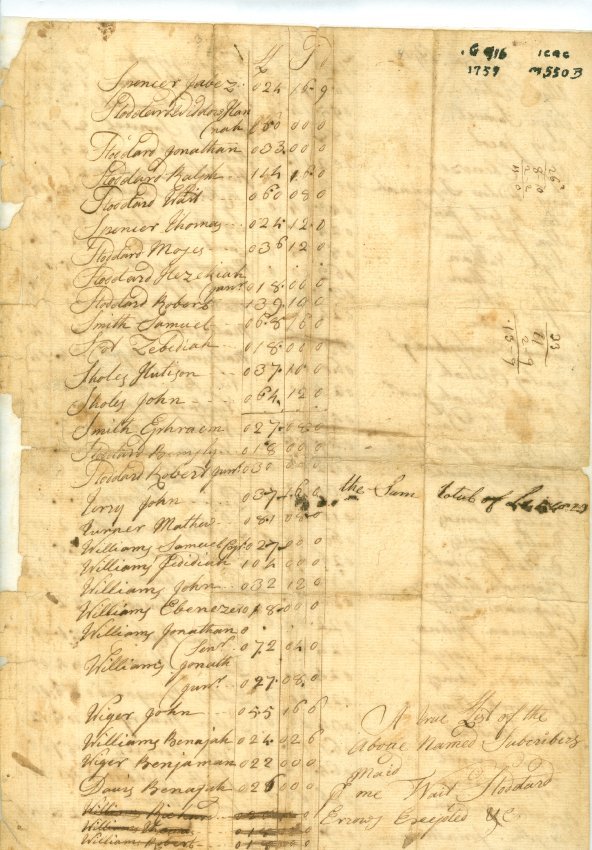 G 916 1cac
1759 m550B
£ S D
Spencer Jabez 024 16 9
Stoddard Widow Han
(nah 150 00 0
Stoddard Jonathan 033 00 0
Stoddard Ralph 144 16 0
Stoddard Wait 060 08 0
Spencer Thomas 024 12 0
Stoddard Moses 036 12 0
Stoddard Hezekiah
018 00 0
Stoddard Robert 139 10 0
Smith Samuel 068 16 0
Zebediah 018 00 0
Sholes Hutison 037 10 0
Sholes John 064 12 0
Smith Ephraem 027 08 0
Stoddard 018 00 0
Stoddard Robert Junr 030 00 0
John 037 16 0 the Sum total of
Turner Mathew 081 08 0
Williams Samuel 027 00 0
Williams Jedidiah 104 00 0
Williams John 032 12 0
Williams Ebenezer 018 00 0
Williams Jonathan
(Senr 072 04 0
Williams Jonath
Junr 027 08 0
Wiger John 055 16 6
Williams Benajah 024 02 6
Wiger Benjaman 022 00 0
Davis Benajah 026 00 0
Williams Richard
Williams
Williams Robert
A true List of the
Above Named Subcribers
maid
me Wait Stoddard
Errors Excepted &c